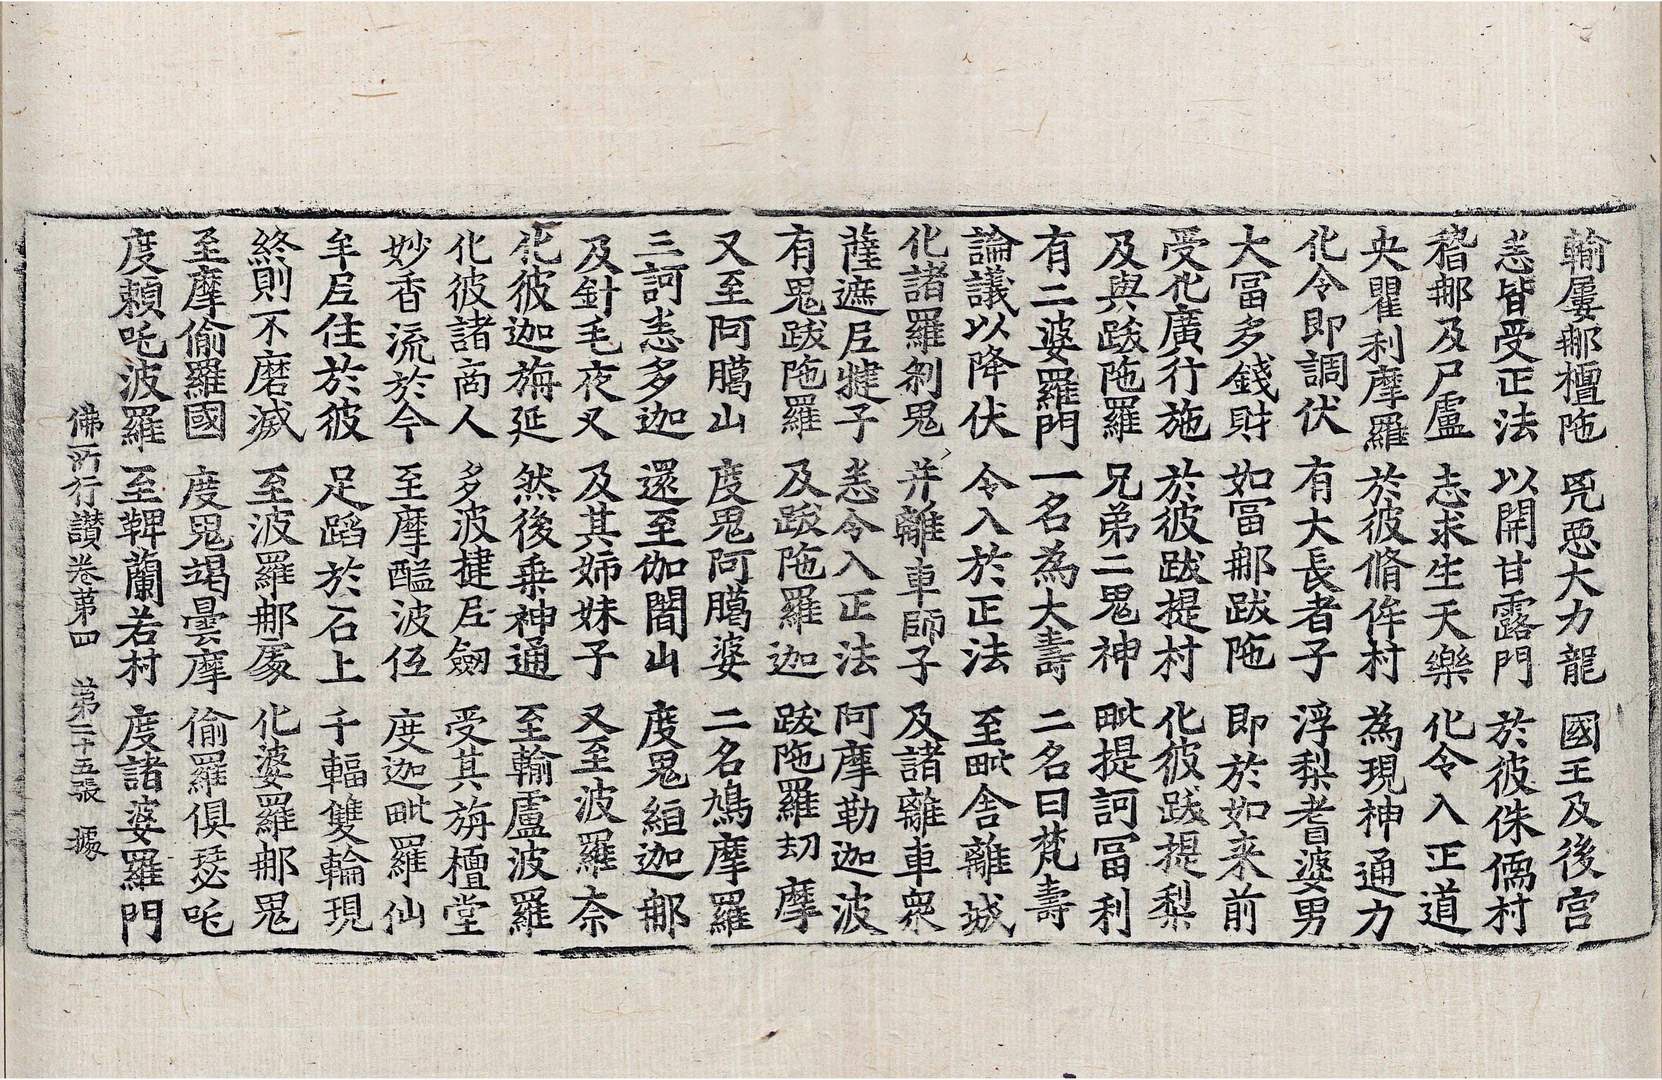 輸屢那檀陁 兇惡大力龍 國王及後宮
悉皆受正法 以開甘露門 於彼侏儒村
稽那及尸盧 志求生天樂 化令入正道
央瞿利摩羅 於彼脩侔村 為現神通力
化令即調伏 有大長者子 浮梨耆婆男
大冨多錢財 如冨那跋陁 即於如来前
受化廣行施 於彼跋提村 化彼跋提梨
及與跋陁羅 兄弟二鬼神 毗提訶冨利
有二婆羅門 一名為大壽 二名曰梵壽
論議以降伏 令入於正法 至毗舍離城
化諸羅剎鬼 并離車師子 及諸離車衆
薩遮尼揵子 悉令入正法 阿摩勒迦波
有鬼跋陁羅 及跋陁羅迦 跋陁羅刧摩
又至阿臈山 度鬼阿臈婆 二名鳩摩羅
三訶悉多迦 還至伽闍山 度鬼絙迦那
及針毛夜叉 及其姉妹子 又至波羅奈
化彼迦旃延 然後乗神通 至輸盧波羅
化彼諸商人 多波揵尼劒 受其旃檀堂
妙香流於今 至摩醯波伍 度迦毗羅仙
牟尼住於彼 足蹈於石上 千輻雙輪現
終則不磨滅 至波羅那處 化婆羅那鬼
至摩偷羅國 度鬼竭曇摩 偷羅俱瑟吒
度頼吒波羅 至鞞蘭若村 度諸婆羅門
佛所行讃卷苐四 苐二十五張 㩀